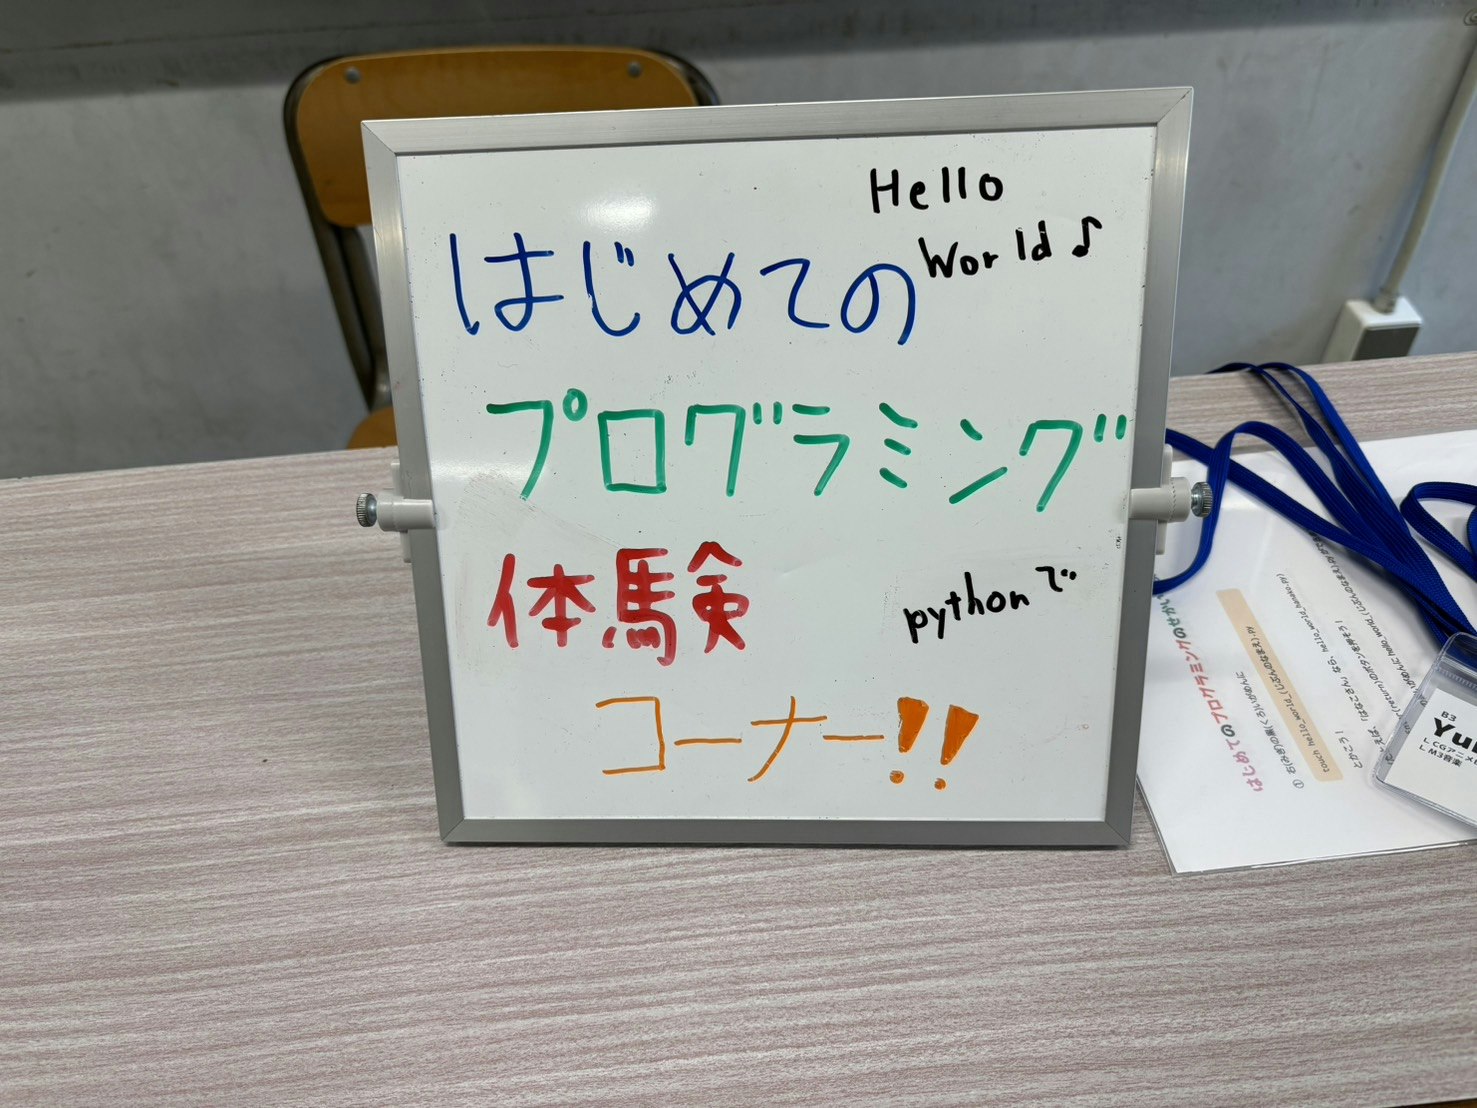 Hello
World♪
はじめての
プログラミング
体験
pythonで
コーナー!!
はじめてのプログラミングのせかい
touch hello_world_(じぶんのなまえ).py
とかこう!
B3
L CGアニメ
L M3音楽